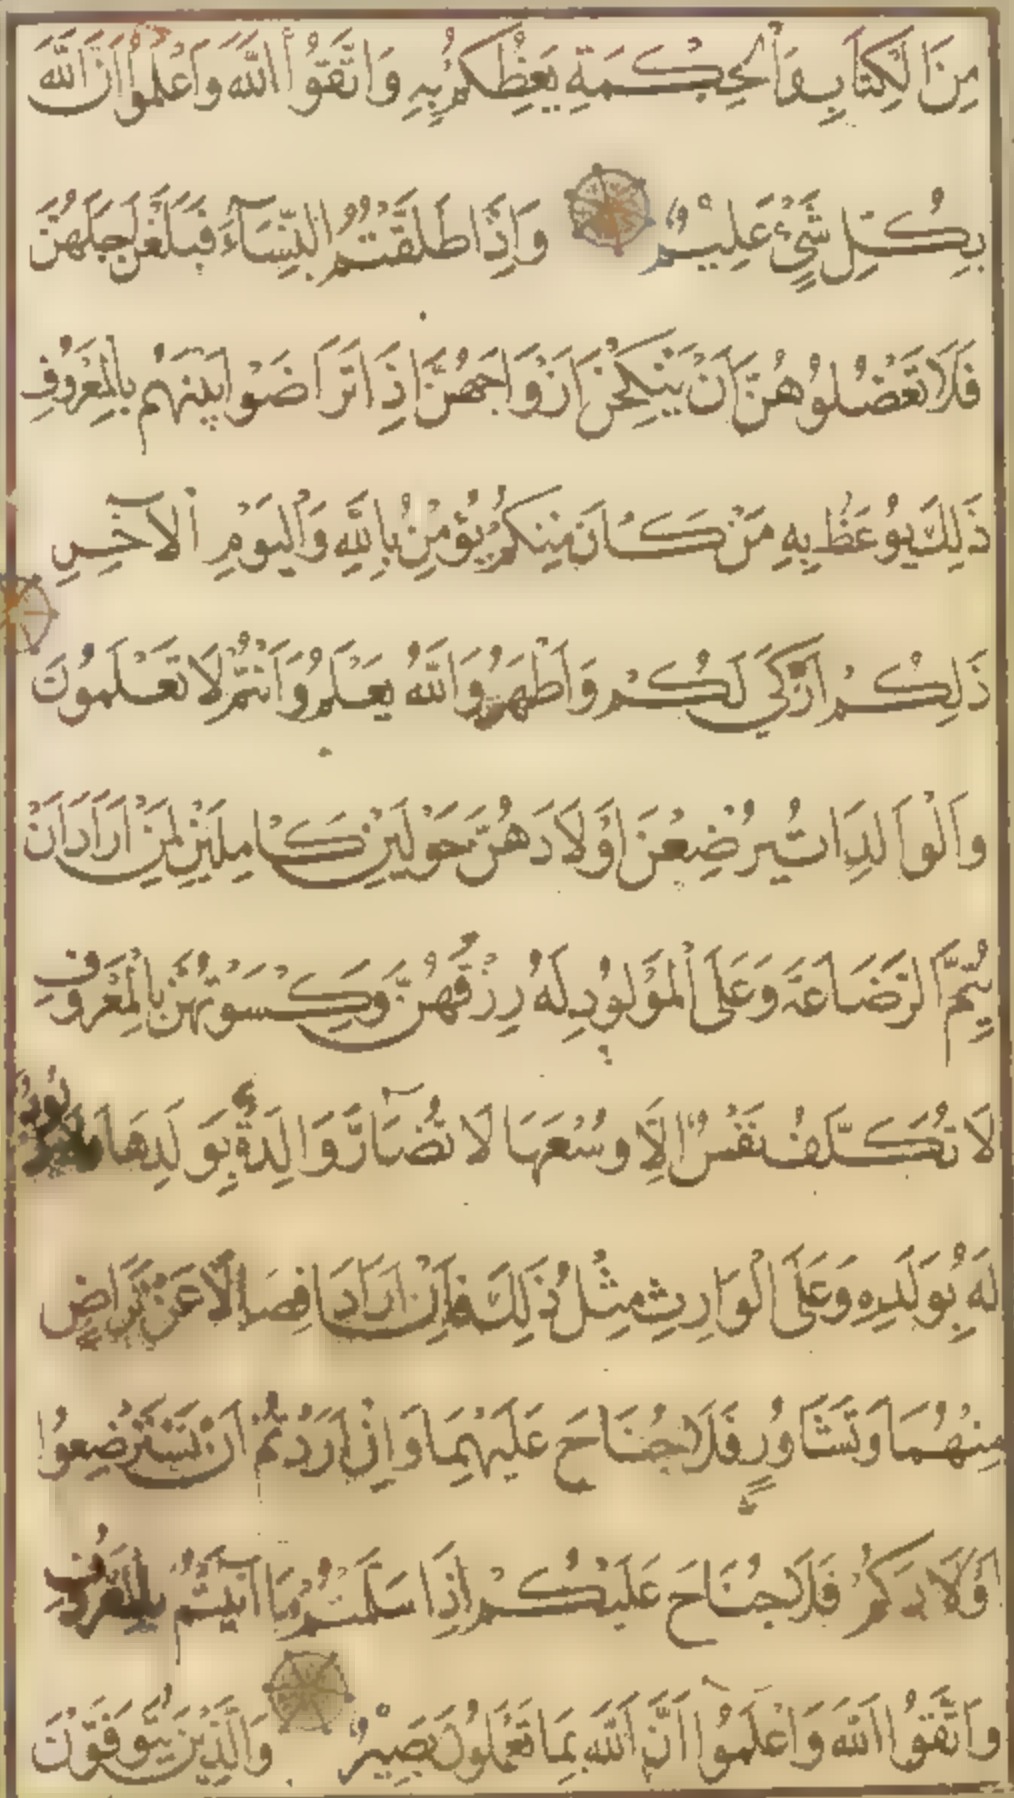 مِنَ الْكِتَابِ وَالْحِكْمَةِ يَعِظُكُمْ بِهِ وَاتَّقُوا اللَّهَ وَاعْلَمُوا أَنَّ اللَّهَ
بِكُلِّ شَيْءٍ عَلِيمٌ وَإِذَا طَلَّقْتُمُ النِّسَاءَ فَبَلَغْنَ أَجَلَهُنَّ
فَلَا تَعْضُلُوهُنَّ أَنْ يَنْكِحْنَ أَزْوَاجَهُنَّ إِذَا تَرَاضَوْا بَيْنَهُمْ بِالْمَعْرُوفِ
ذَلِكَ يُوعَظُ بِهِ مَنْ كَانَ مِنْكُمْ يُؤْمِنُ بِاللَّهِ وَالْيَوْمِ الْآخِرِ
ذَلِكُمْ أَزْكَى لَكُمْ وَأَطْهَرُ وَاللَّهُ يَعْلَمُ وَأَنْتُمْ لَا تَعْلَمُونَ
وَالْوَالِدَاتُ يُرْضِعْنَ أَوْلَادَهُنَّ حَوْلَيْنِ كَامِلَيْنِ لِمَنْ أَرَادَ أَنْ
يُتِمَّ الرَّضَاعَةَ وَعَلَى الْمَوْلُودِ لَهُ رِزْقُهُنَّ وَكِسْوَتُهُنَّ بِالْمَعْرُوفِ
لَا تُكَلَّفُ نَفْسٌ إِلَّا وُسْعَهَا لَا تُضَارَّ وَالِدَةٌ بِوَلَدِهَا
لَهُ بِوَلَدِهِ وَعَلَى الْوَارِثِ مِثْلُ ذَلِكَ فَإِنْ أَرَادَا فِصَالًا عَنْ تَرَاضٍ
مِنْهُمَا وَتَشَاوُرٍ فَلَا جُنَاحَ عَلَيْهِمَا وَإِنْ أَرَدْتُمْ أَنْ تَسْتَرْضِعُوا
أَوْلَادَكُمْ فَلَا جُنَاحَ عَلَيْكُمْ إِذَا سَلَّمْتُمْ مَا آتَيْتُمْ بِالْمَعْرُوفِ
وَاتَّقُوا اللَّهَ وَاعْلَمُوا أَنَّ اللَّهَ بِمَا تَعْمَلُونَ بَصِيرٌ وَالَّذِينَ يُتَوَفَّوْنَ